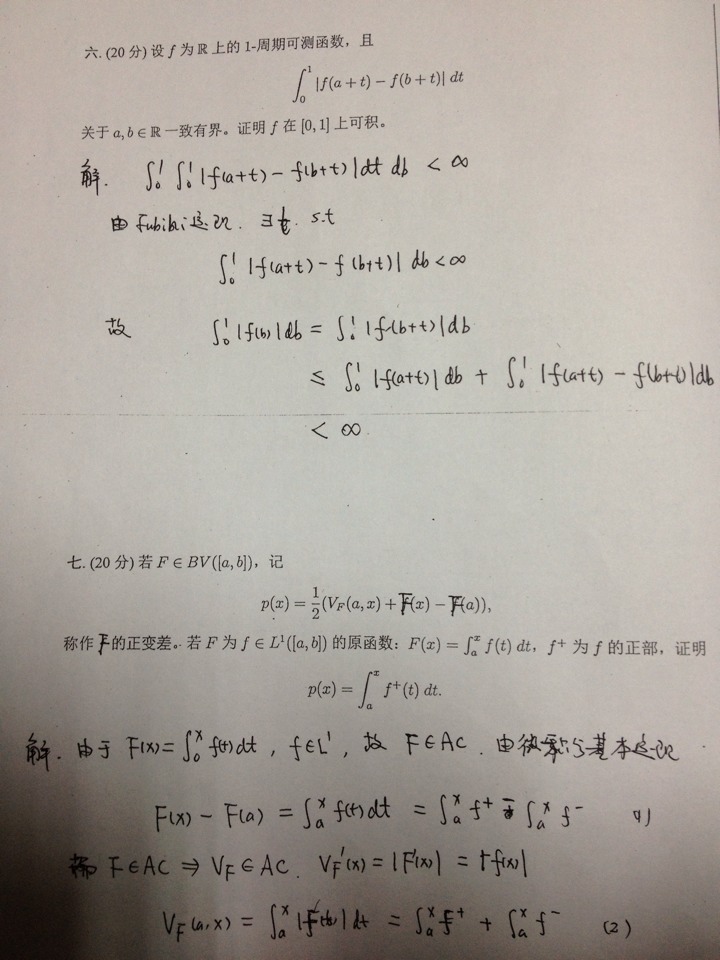 六. (20 分) 设 f 为 ℝ 上的 1-周期可测函数，且
∫₀¹ |f(a + t) − f(b + t)| dt
关于 a, b ∈ ℝ 一致有界。证明 f 在 [0, 1] 上可积。
解. ∫₀¹ ∫₀¹ |f(a+t) − f(b+t)| dt db < ∞
由 Fubini 定理. ∃ t. s.t
∫₀¹ |f(a+t) − f(b+t)| db < ∞
故 ∫₀¹ |f(b)| db = ∫₀¹ |f(b+t)| db
≤ ∫₀¹ |f(a+t)| db + ∫₀¹ |f(a+t) − f(b+t)| db
< ∞.
七. (20 分) 若 F ∈ BV([a, b])，记
p(x) = 1/2 (V_F(a, x) + F(x) − F(a)),
称作 F 的正变差。若 F 为 f ∈ L¹([a, b]) 的原函数：F(x) = ∫ₐˣ f(t) dt，f⁺ 为 f 的正部，证明
p(x) = ∫ₐˣ f⁺(t) dt.
解. 由于 F(x) = ∫₀ˣ f(t) dt , f ∈ L¹ , 故 F ∈ AC . 由微积分基本定理
F(x) − F(a) = ∫ₐˣ f(t) dt = ∫ₐˣ f⁺ − ∫ₐˣ f⁻ (1)
F ∈ AC ⇒ V_F ∈ AC . V_F′(x) = |F′(x)| = |f(x)|
V_F(a, x) = ∫ₐˣ |f(t)| dt = ∫ₐˣ f⁺ + ∫ₐˣ f⁻ (2)